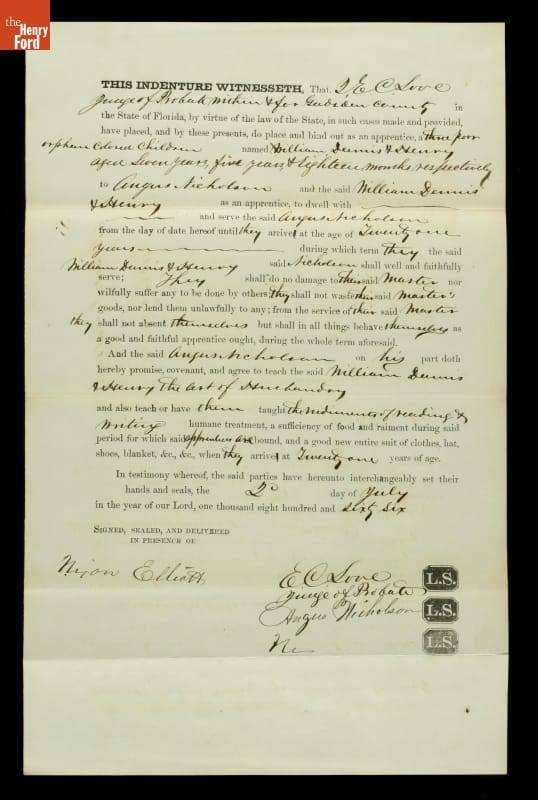 the
Henry
Ford
THIS INDENTURE WITNESSETH, That I, E. C. Love
Judge of Probate within & for Gadsden County in
the State of Florida, by virtue of the law of the State, in such cases made and provided,
have placed, and by these presents, do place and bind out as an apprentice, a three poor
orphan Colored Children named William Dennis & Henry
aged Seven years, five years, & Eighteen months, respectively
to Angus Nicholson and the said William Dennis
& Henry as an apprentice, to dwell with
and serve the said Angus Nicholson
from the day of date hereof until they arrive at the age of Twenty one
years during which term they the said
William Dennis & Henry said Nicholson shall well and faithfully
serve; They shall do no damage to their said Master nor
wilfully suffer any to be done by others; they shall not waste their said Master's
goods, nor lend them unlawfully to any; from the service of their said Master
they shall not absent themselves but shall in all things behave themselves as
a good and faithful apprentice ought, during the whole term aforesaid.
And the said Angus Nicholson on his part doth
hereby promise, covenant, and agree to teach the said William Dennis
& Henry the art of Husbandry
and also teach or have them taught the rudiments of reading &
writing humane treatment, a sufficiency of food and raiment during said
period for which said apprentices are bound, and a good new entire suit of clothes, hat,
shoes, blanket, &c., &c., when they arrive at Twenty one years of age.
In testimony whereof, the said parties have hereunto interchangeably set their
hands and seals, the 2d day of July
in the year of our Lord, one thousand eight hundred and sixty six
SIGNED, SEALED, AND DELIVERED
IN PRESENCE OF
Nixon Elliott
E. C. Love L.S.
Judge of Probate
Angus Nicholson L.S.
L.S.